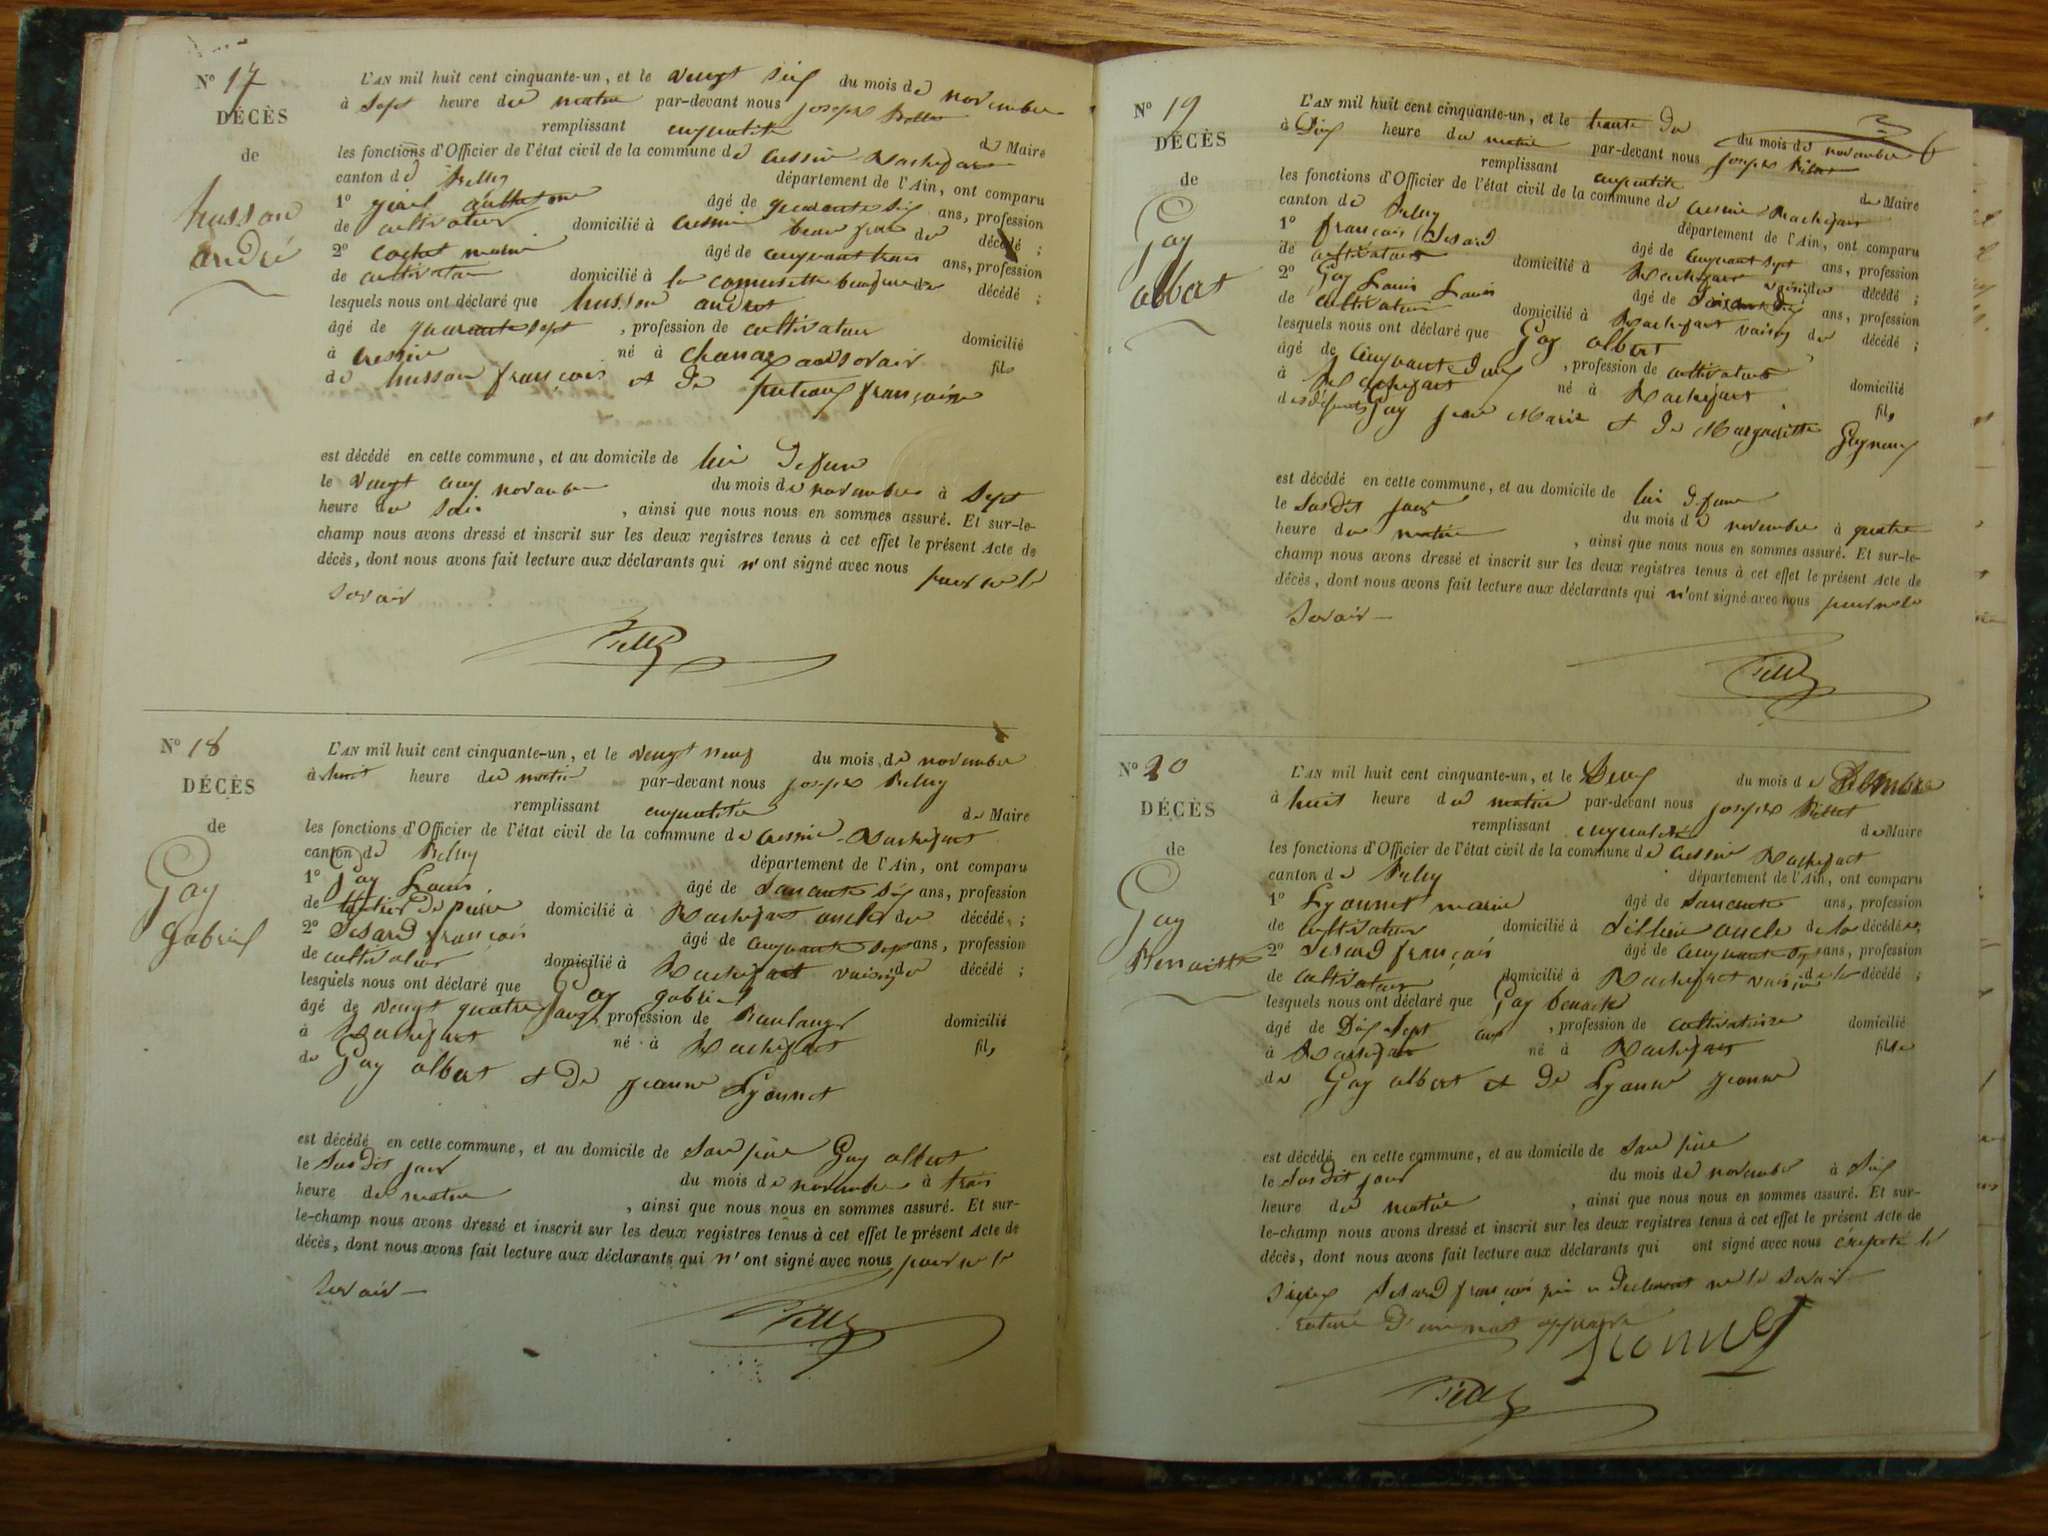 N° 17
DÉCÈS
de
husson
andré
L'AN mil huit cent cinquante-un, et le vengt six du mois de novembre
à sept heure du matin par-devant nous joseph
remplissant de Maire
les fonctions d'Officier de l'état civil de la commune de cressin Rochefort
canton de Belley département de l'Ain, ont comparu
1° âgé de quarante six ans, profession
de cultivateur domicilié à cressin beau frère du décédé ;
2° cochet âgé de cinquant trois ans, profession
de cultivateur domicilié à la décédé ;
lesquels nous ont déclaré que husson
âgé de quarante sept, profession de cultivateur domicilié
à cressin né à chanaz en savoir fils
de husson françois et de françoise
est décédé en cette commune, et au domicile de lui
le vengt cinq novembre du mois de novembre à sept
heure du soir, ainsi que nous nous en sommes assuré. Et sur-le-
champ nous avons dressé et inscrit sur les deux registres tenus à cet effet le présent Acte de
décès, dont nous avons fait lecture aux déclarants qui n'ont signé avec nous pour ne le
savoir
N° 18
DÉCÈS
de
Gay
gabriel
L'AN mil huit cent cinquante-un, et le vengt neuf du mois de novembre
à huit heure du matin par-devant nous joseph
remplissant de Maire
les fonctions d'Officier de l'état civil de la commune de cressin Rochefort
canton de Belley département de l'Ain, ont comparu
1° Gay Louis âgé de ans, profession
de domicilié à Rochefort oncle du décédé ;
2° françois âgé de cinquante sept ans, profession
de cultivateur domicilié à Rochefort voisin du décédé ;
lesquels nous ont déclaré que Gay gabriel
âgé de vengt quatre ans, profession de Boulanger domicilié
à Rochefort né à Rochefort fils
de Gay albert et de jeanne Lyonnet
est décédé en cette commune, et au domicile de son père Gay albert
le susdit jour du mois de novembre à trois
heure du matin, ainsi que nous nous en sommes assuré. Et sur-
le-champ nous avons dressé et inscrit sur les deux registres tenus à cet effet le présent Acte de
décès, dont nous avons fait lecture aux déclarants qui n'ont signé avec nous pour ne le
savoir
N° 19
DÉCÈS
de
Gay
albert
L'AN mil huit cent cinquante-un, et le trente du du mois de novembre
à Dix heure du matin par-devant nous joseph
remplissant de Maire
les fonctions d'Officier de l'état civil de la commune de cressin Rochefort
canton de Belley département de l'Ain, ont comparu
1° françois âgé de cinquant sept ans, profession
de cultivateur domicilié à Rochefort voisin du décédé ;
2° Gay Louis Louis âgé de ans, profession
de cultivateur domicilié à Rochefort voisin du décédé ;
lesquels nous ont déclaré que Gay albert
âgé de cinquante deux, profession de cultivateur domicilié
à Rochefort né à Rochefort fils
des défunts Gay jean Marie et de Margueritte
est décédé en cette commune, et au domicile de lui
le susdit jour du mois de novembre à quatre
heure du matin, ainsi que nous nous en sommes assuré. Et sur-le-
champ nous avons dressé et inscrit sur les deux registres tenus à cet effet le présent Acte de
décès, dont nous avons fait lecture aux déclarants qui n'ont signé avec nous pour ne le
savoir
N° 20
DÉCÈS
de
Gay
Benoitte
L'AN mil huit cent cinquante-un, et le Deux du mois de
à huit heure du matin par-devant nous joseph
remplissant de Maire
les fonctions d'Officier de l'état civil de la commune de cressin Rochefort
canton de Belley département de l'Ain, ont comparu
1° Lyonnet marin âgé de ans, profession
de cultivateur domicilié à oncle de la décédée;
2° françois âgé de cinquante sept ans, profession
de cultivateur domicilié à Rochefort voisin de la décédé ;
lesquels nous ont déclaré que Gay
âgé de Dix sept ans, profession de cultivatrice domicilié
à Rochefort né à Rochefort fille
de Gay albert et de jeanne
est décédé en cette commune, et au domicile de son père
le susdit jour du mois de novembre à Six
heure du matin, ainsi que nous nous en sommes assuré. Et sur-
le-champ nous avons dressé et inscrit sur les deux registres tenus à cet effet le présent Acte de
décès, dont nous avons fait lecture aux déclarants qui ont signé avec nous excepté le
françois ne le savoir